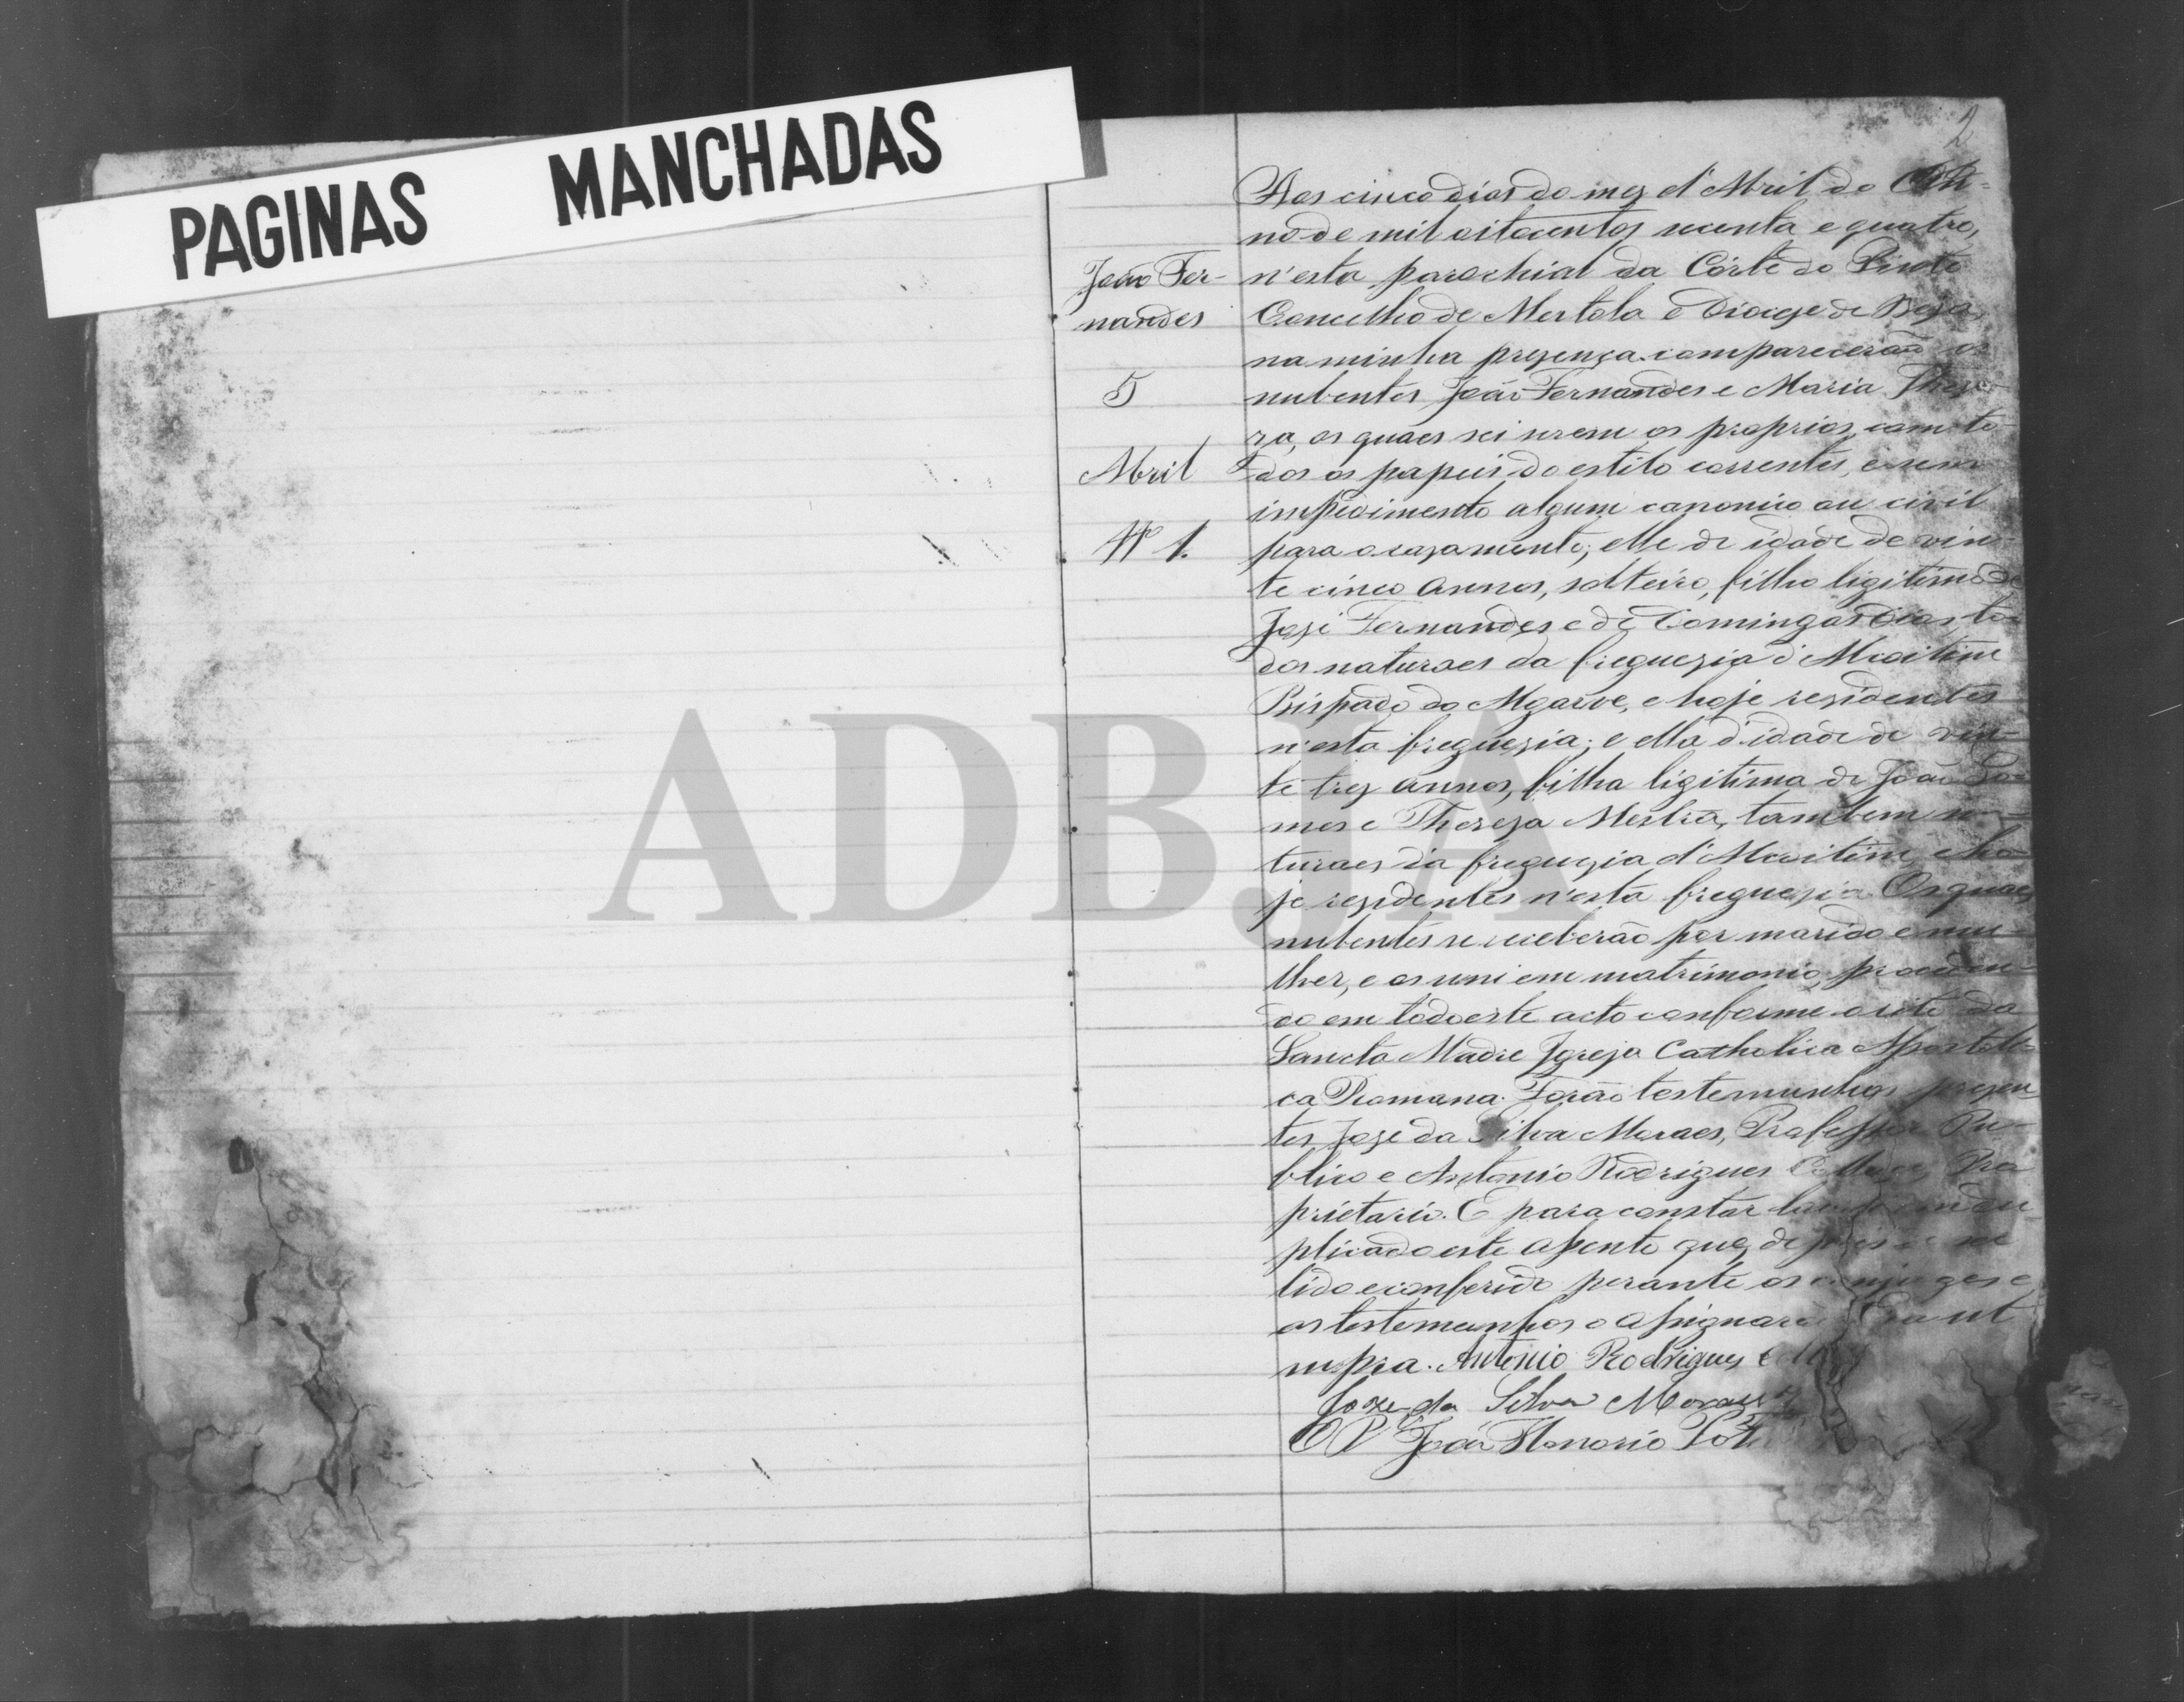 PAGINAS MANCHADAS
2
João Fer-
nandes
5
Abril
Nº 1.
Aos cinco dias do mez d'Abril do An-
no de mil oitocentos secenta e quatro,
n'esta parochial da Côrte do Pinto
Concelho de Mertola e Diocese de Beja,
na minha prezença comparecerão os
nubentes João Fernandes e Maria There-
za, os quaes sei serem os proprios, com to-
dos os papeis do estilo correntes, e sem
impedimento algum canonico ou civil
para o cazamento; elle de idade de vin-
te cinco annos, solteiro, filho ligitimo de
José Fernandes e de Domingas Dias, to-
dos naturaes da freguezia d'
Bispado do Algarve, e hoje rezidentes
n'esta freguezia; e ella d'idade de vin-
te trez annos, filha ligitima de João Go-
mes e Thereza Mestra, tambem na-
turaes da freguezia d' e ho-
je rezidentes n'esta freguezia. Os quaes
nubentes se receberão por marido e mu-
lher, e os uni em matrimonio, proceden-
do em todo este acto conforme o rito da
Sancta Madre Igreja Catholica Apostoli-
ca Romana. Forão testemunhas prezen-
tes José da Silva Moraes, Professor Pu-
blico e Antonio Rodrigues Pro-
prietario. E para constar em du-
plicado este assento que, depois de ser
lido e conferido perante os conjuges e
as testemunhas o assignarão Era ut
supra. Antonio Rodrigues
Joze da Silva Moraes
O P.e João Honorio
ADBJA